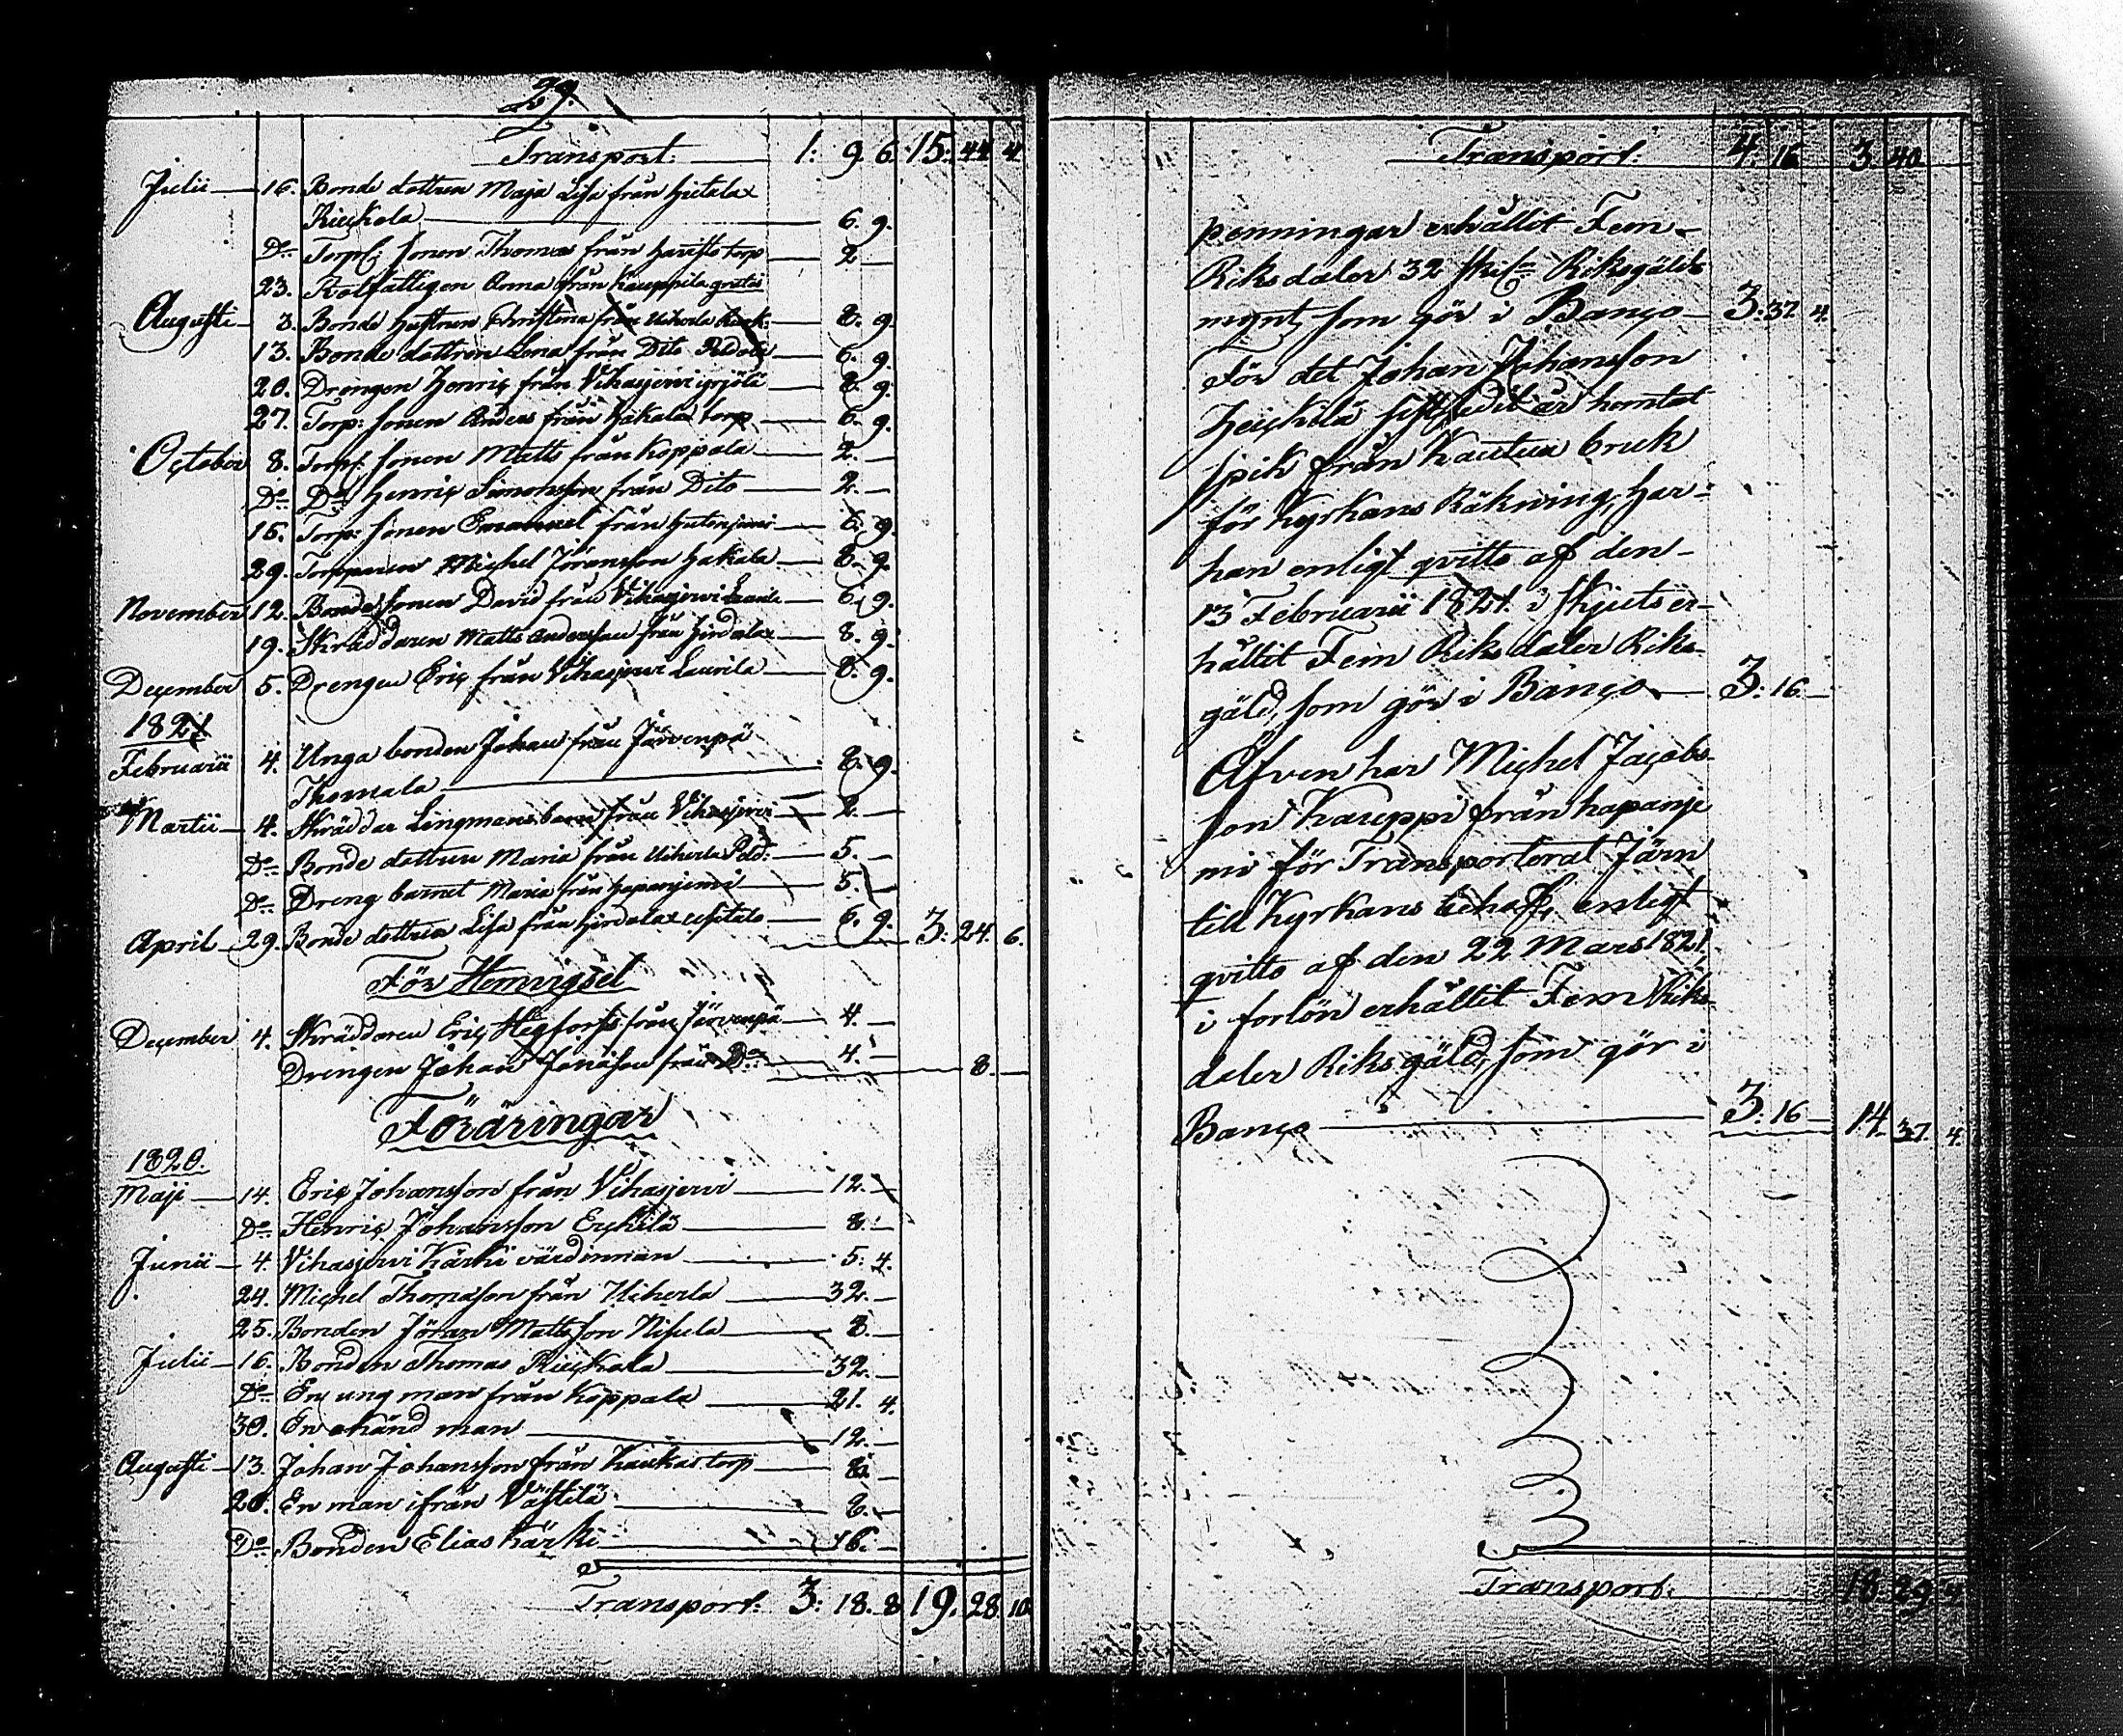 29.
Transport. 1: 9. 6. 15. 44. 4
Julii 16. Bonde dottren Maja Lisa från Hietala
6. 9.
Do Torp: sonen Thomas från torp 2 —
23. Rotfattigen Anna från Kauppila gratis
Augusti 3. Bonde hustrun Christina från Uiherla 8. 9.
13. Bonde dottren Lena från Dito 6. 9.
20. Drengen Henriç från Vihasjervi Yrjölä 8. 9.
27. Torp: sonen Anders från Hakala torp 6. 9.
October 8. Torp: sonen Matts från Koppala 2. —
Do Do Henriç Simonsson från Dito 2. —
15. Torp: sonen Emanuel från 6. 9.
29. Torparen Michel Jöransson Hakala 8. 9.
November 12. Bonde sonen David från Vihasjervi 6. 9.
19. Skräddaren Matts Andersson från Hirdala 8. 9.
December 5. Drengen Eriç från Vihasjervi Laurila 8. 9.
1821
Februarii 4. Unga bonden Johan från Järvenpä
Thomala 8. 9.
Martii 4. Skräddar Lingmans barn från Vihasjervi 2. —
Do Bonde dottren Maria från Uiherla 5. —
Do Dreng barnet Maria från Hapanjemi 5. —
April 29. Bonde dottren Lisa från 6. 9. 3. 24. 6.
För Hemvigsel
December 4. Skräddaren Eriç Hegforss från Järvenpä 4. —
Drengen Johan från Do 4. — 8. —
Föräringar
1820.
Maji 14. Eriç Johansson från Vihasjervi 12. —
Do Henriç Johansson Eçkilä 8. —
Junii 4. Vihasjervi Kärki värdinnan 5. 4.
24. Michel Thomason från Uiherla 32. —
25. Bonden Jöran Mattsson Nisula 8. —
Julii 16. Bonden Thomas 32. —
Do En ung man från Koppala 21. 4.
30. En okänd man 12. —
Augusti 13. Johan Johansson från Kaukas torp 8. —
20. En man ifrån Västilä 8. —
Do Bonden Elias Kärki 16. —
Transport. 3. 18. 8 19. 28. 10
Transport. 4. 16 3. 40
penningar erhållit Fem
Riksdaler 32 Riksgälds
mynt, som gör i Banço 3. 37 4.
För det Johan Johansson
Heiçkilä är hemtat
spik från Kautua bruk
för Kyrkans Räkning, har
han enligt qvitto af den
13 Februarii 1821. i skjuts er-
hållit Fem Riksdaler Riks-
gäld, som gör i Banço 3. 16 —
Äfven har Michel Jaçobs-
son Kauppi från Hapanje
mi för Transporterat Järn
till Kyrkans behof, enligt
qvitto af den 22 Mars 1821
i forlön erhållit Fem Riks-
daler Riksgäld, som gör i
Banço 3. 16 — 14. 37. 4.
Transport. 18. 29. 4